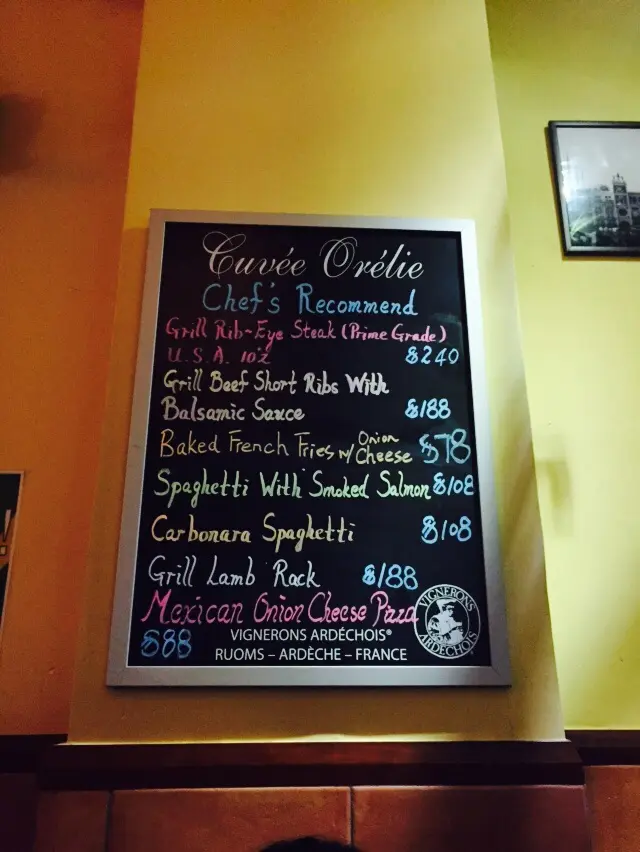 Cuvée Orélie
Chef's Recommend
Grill Rib-Eye Steak (Prime Grade)
U.S.A. 10z $240
Grill Beef Short Ribs With
Balsamic Sauce $188
Baked French Fries w/ Onion Cheese $78
Spaghetti With Smoked Salmon $108
Carbonara Spaghetti $108
Grill Lamb Rack $188
Mexican Onion Cheese Pizza
$88
VIGNERONS ARDÉCHOIS®
RUOMS – ARDÈCHE – FRANCE
VIGNERONS
ARDÉCHOIS